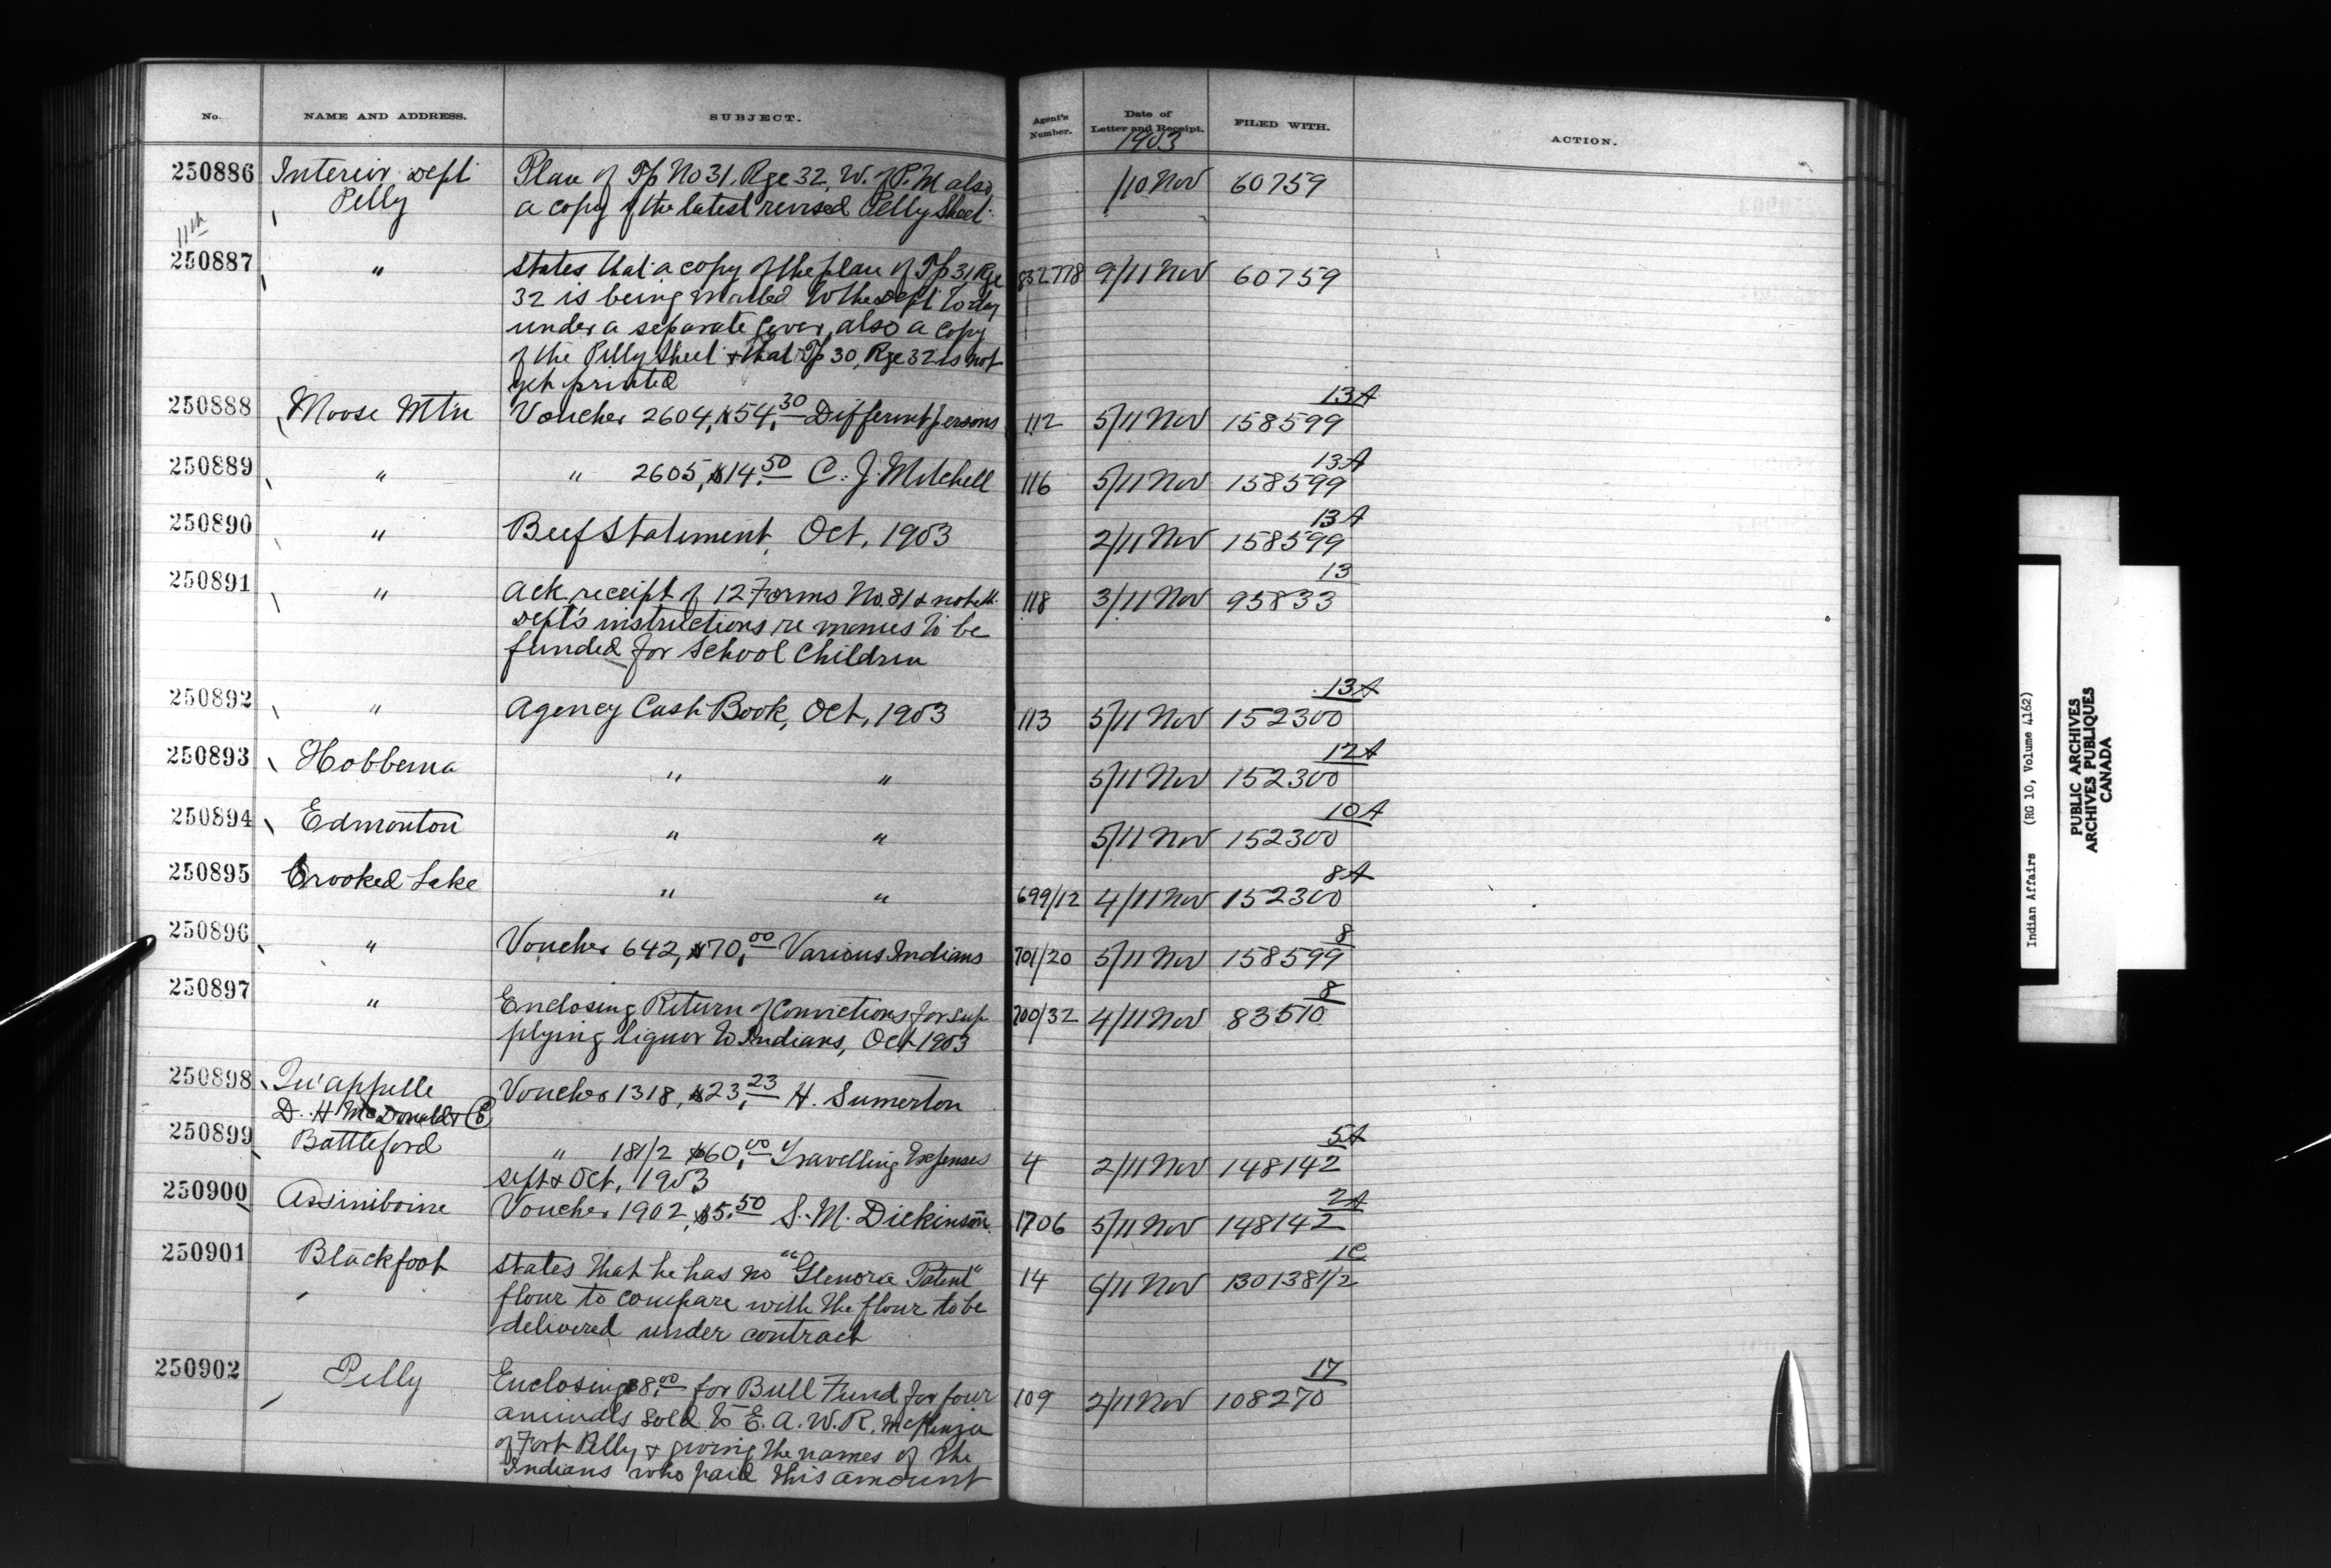 No. NAME AND ADDRESS. SUBJECT. Agent's Number. Date of Letter and Receipt. FILED WITH. ACTION.
1903
250886 Interior Dept Plan of Tp No 31, Rge 32, W. of P. M also /10 Nov 60759
Pelly a copy of the latest revised Pelly Sheet.
11th
250887 " States that a copy of the plan of Tp 31 Rge 832778 9/11 Nov 60759
32 is being mailed to the Dept today
under a separate cover, also a copy
of the Pelly Sheet & that Tp 30, Rge 32 is not
yet printed
13A
250888 Moose Mtn Voucher 2604, $54.30 Different persons 112 5/11 Nov 158599
13A
250889 " " 2605, $14.50 C. J. Mitchell 116 5/11 Nov 158599
13A
250890 " Beef Statement, Oct, 1903 2/11 Nov 158599
13
250891 " Ack receipt of 12 Forms No. 81 & 118 3/11 Nov 95833
Dept's instructions re monies to be
funded for School Children
13A
250892 " Agency Cash Book, Oct, 1903 113 5/11 Nov 152300
12A
250893 Hobbema " " 5/11 Nov 152300
10A
250894 Edmonton " " 5/11 Nov 152300
8A
250895 Crooked Lake " " 699/12 4/11 Nov 152300
8
250896 " Voucher 642, $70.00 Various Indians 701/20 5/11 Nov 158599
8
250897 " Enclosing Return of Convictions for sup 700/32 4/11 Nov 83510
plying liquor to Indians, Oct 1903
250898 Qu'appelle Voucher 1318, $23.23 H. Sumerton
D. H McDonald & Co
5A
250899 Battleford " 181/2 $60.00 Travelling Expenses 4 2/11 Nov 148142
Sept & Oct, 1903
2A
250900 Assiniboine Voucher 1902, $5.50 S. M. Dickinson 1706 5/11 Nov 148142
1C
250901 Blackfoot States that he has no "Glenora Patent" 14 6/11 Nov 130138 1/2
flour to compare with the flour to be
delivered under contract
17
250902 Pelly Enclosing $8.00 for Bull Fund for four 109 2/11 Nov 108270
animals sold to E. A. W. R. McKenzie
of Fort Pelly & giving the names of the
Indians who paid this amount
Indian Affairs (RG 10, Volume 4162)
PUBLIC ARCHIVES
ARCHIVES PUBLIQUES
CANADA